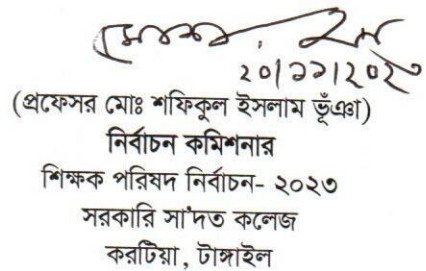 ২০|১১|২০২৩
(প্রফেসর মোঃ শফিকুল ইসলাম ভূঁঞা)
নির্বাচন কমিশনার
শিক্ষক পরিষদ নির্বাচন- ২০২৩
সরকারি সা'দত কলেজ
করটিয়া, টাঙ্গাইল